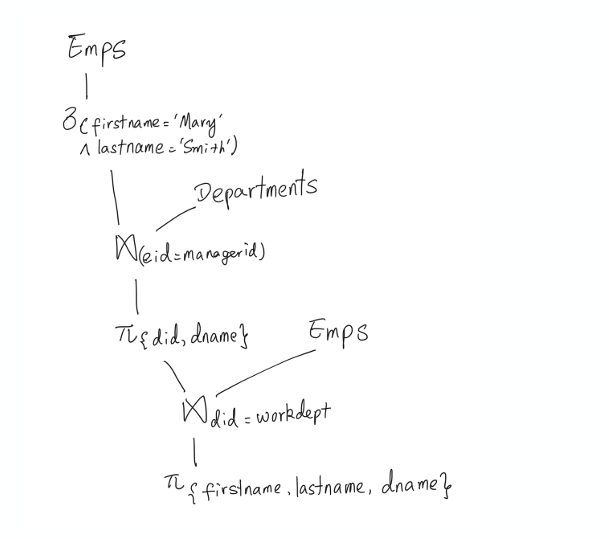 Emps
σ(firstname='Mary'
∧ lastname='Smith')
Departments
⋈(eid=managerid)
π{did, dname}
Emps
⋈did=workdept
π{firstname, lastname, dname}